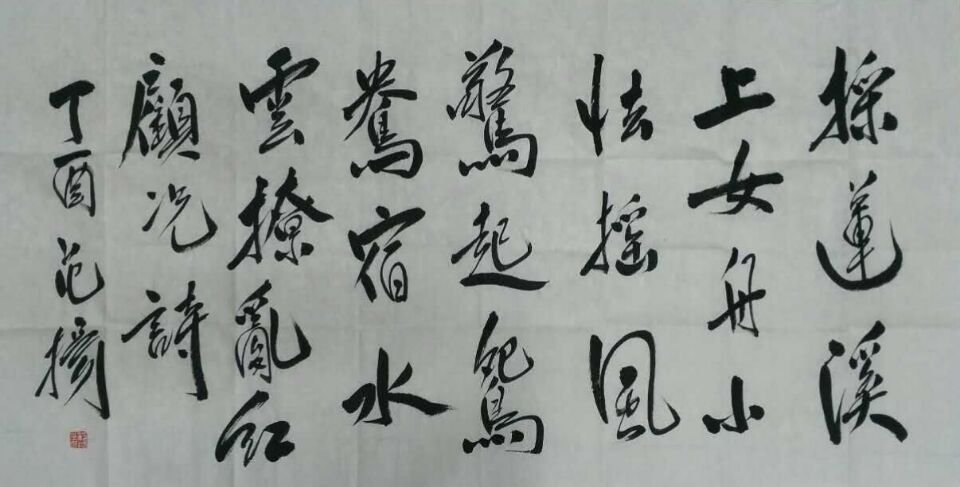 採蓮溪
上女舟小
怯摇風
驚起鴛
鴦宿水
雲撩亂紅
顧况詩
丁酉范